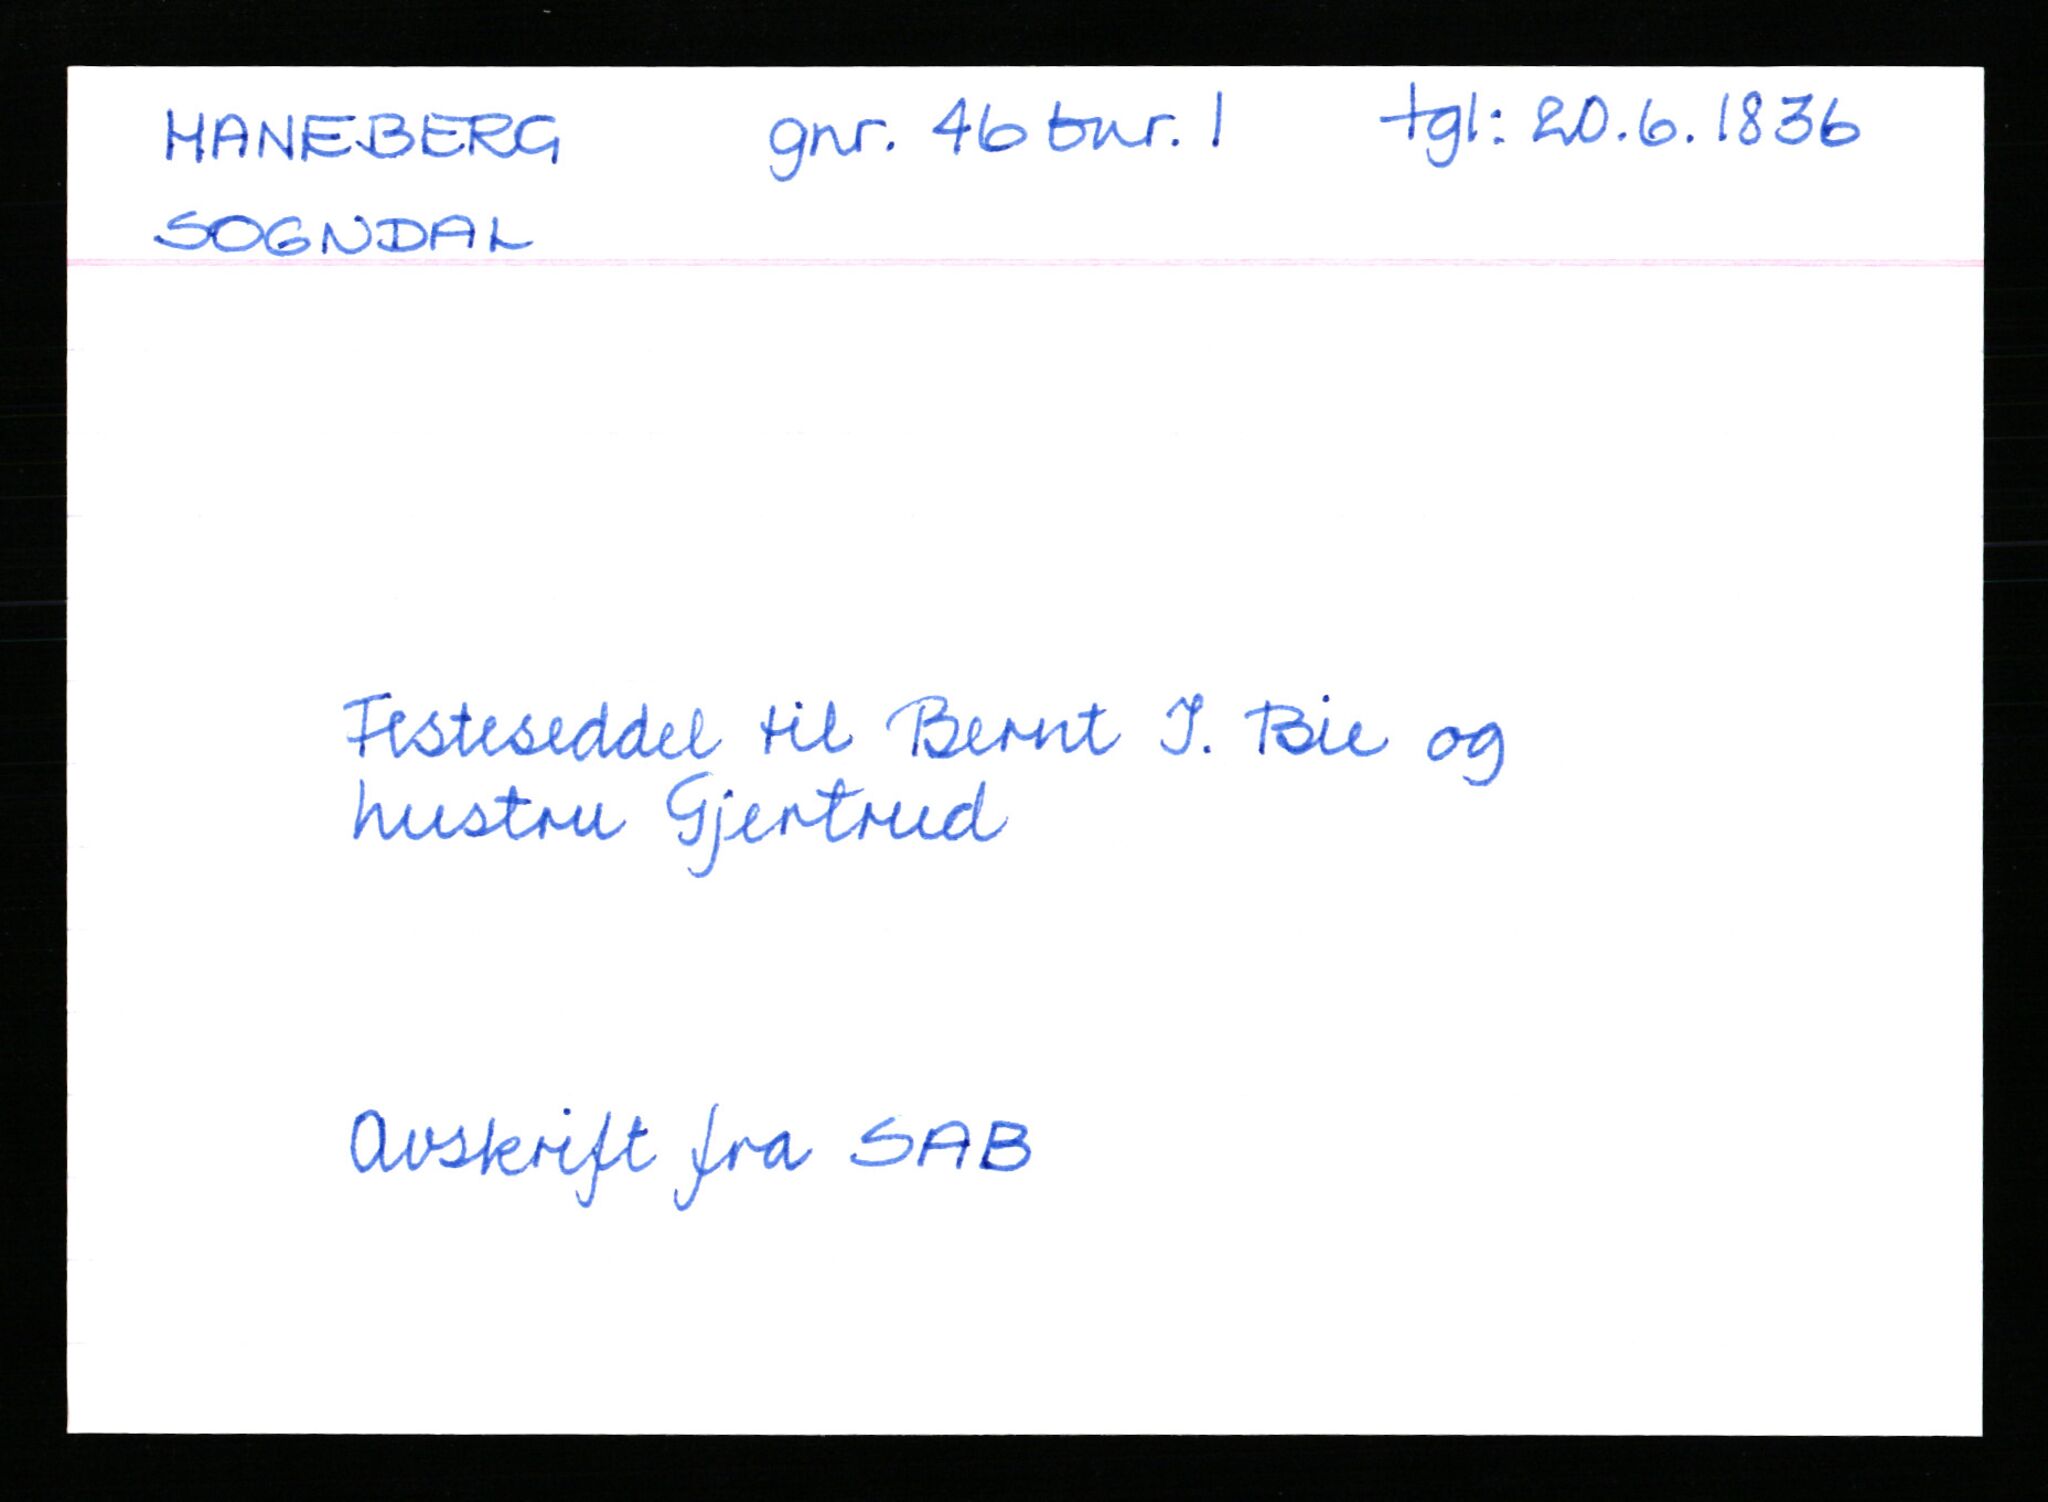 HANEBERG gnr. 46 bnr. 1 tgl: 20.6.1836
SOGNDAL
Festeseddel til Bernt I. Bie og
hustru Gjertrud
Avskrift fra SAB